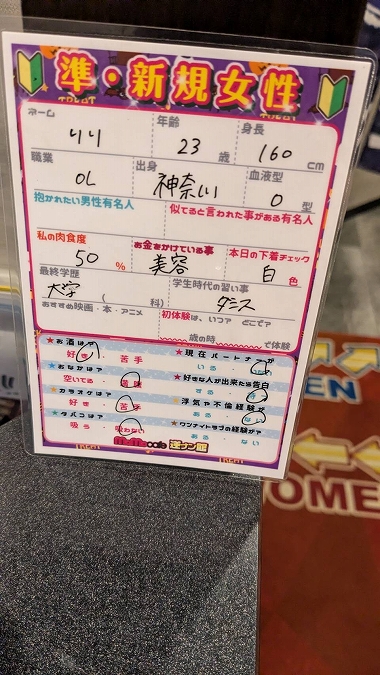 準・新規女性
ネーム
りり
年齢
23 歳
身長
160 cm
職業
OL
出身
神奈川
血液型
O 型
抱かれたい男性有名人
似てると言われた事がある有名人
私の肉食度
50 %
お金をかけている事
美容
本日の下着チェック
白 色
最終学歴
大学
( 科)
学生時代の習い事
ダンス
おすすめ映画・本・アニメ
初体験は、いつ? どこで?
歳の時 で体験
★お酒は?
好き 苦手
★現在パートナーが
いる いない
★おなかは?
空いてる
★好きな人が出来たら告白
する
★カラオケは?
好き 苦手
★浮気や不倫経験が
ある ない
★タバコは?
吸う 吸わない
★ワンナイトラブの経験が?
ある ない
cafe 逆ナン館
TREAT
EN
OMEN